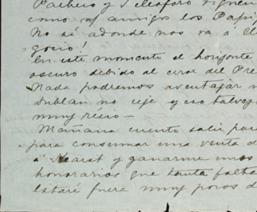 Pacheco y Teleforo siguen
como mi amigo los Papi
No sé adonde nos va á ll
gocio!
En este momento el horizonte
oscuro debido al error del Pre
Nada podremos aventajar
no ceje y eso talvez
muy recio-
Mañana cuento salir par
para consumar una venta d
á y ganarme unos
honorarios que tanta falta
Estaré fuera muy pocos d